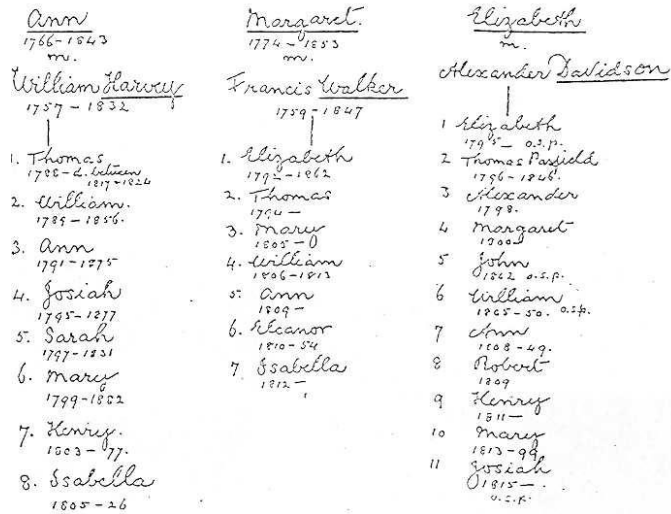 Ann
1766-1843
m.
William Harvey
1757-1832
1. Thomas
1788-d. between
1817-1824
2. William.
1789-1856.
3. Ann
1791-1875
4. Josiah
1795-1877
5. Sarah
1797-1831
6. Mary
1799-1882
7. Henry.
1803-77.
8. Isabella
1805-26
Margaret.
1774-1853
m.
Francis Walker
1759-1847
1. Elizabeth
1792-1862
2. Thomas
1794-
3. Mary
1805-
4. William
1806-1813
5. Ann
1809-
6. Eleanor
1810-54
7 Isabella
1812-
Elizabeth
m.
Alexander Davidson
1 Elizabeth
1795- o.s.p.
2 Thomas Pasfield
1796-1846.
3 Alexander
1798.
4 Margaret
1800
5 John
o.s.p.
6 William
o.s.p.
7 Ann
1808-49.
8 Robert
1809
9 Henry
1811-
10 Mary
1813-99
11 Josiah
1815-
o.s.p.